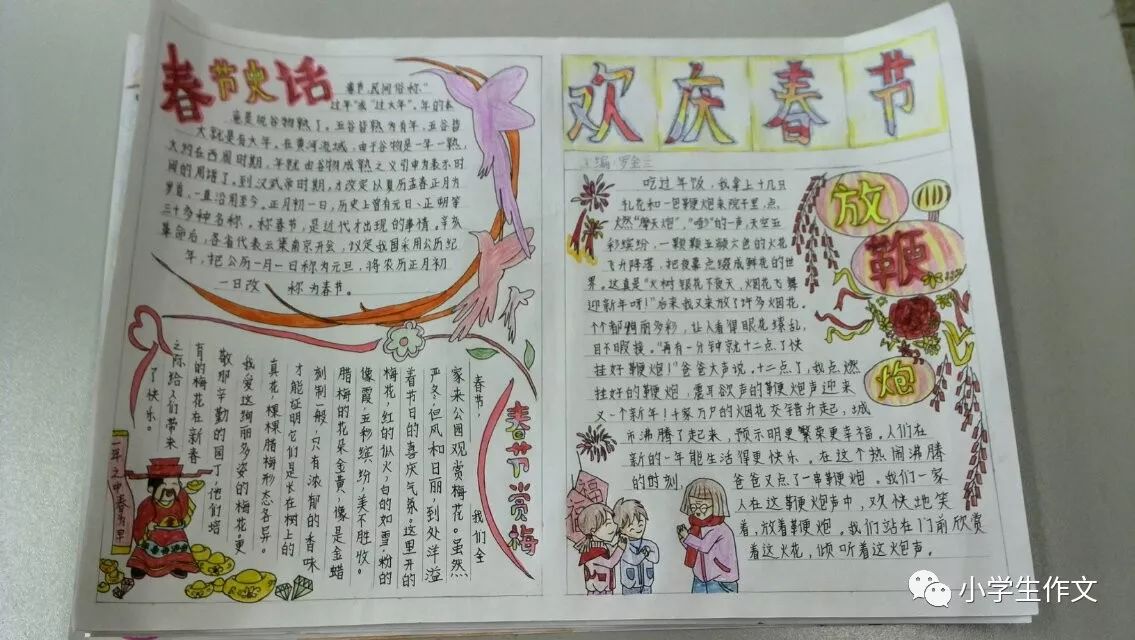 春节史话
春节,民间俗称"
过年"或"过大年"。年的本
意是说谷物熟了。五谷皆熟为有年,五谷皆
大熟是有大年。在黄河流域,由于谷物是一年一熟,
大约在西周时期,年就由谷物成熟之义引申为表示时
间的周期了。到汉武帝时期,才改定以夏历孟春正月为
岁首,一直沿用至今。正月初一日,历史上曾有元日、正朔等
三十多种名称。称春节,是近代才出现的事情。辛亥
革命后,各省代表云集南京开会,议定我国采用公历纪
年,把公历一月一日称为元旦,将农历正月初
一日改 称为春节。
春节赏梅
春节,我们全
家来公园观赏梅花。虽然
严冬,但风和日丽,到处洋溢
着节日的喜庆气氛。这里开的
梅花,红的似火,白的如雪,粉的
像霞,五彩缤纷,美不胜收。
腊梅的花朵金黄,像是金蜡
刻制一般,只有浓郁的香味
才能证明它们是长在树上的
真花,棵棵腊梅形态名异。
我爱这绚丽多姿的梅花,更
敬那辛勤的园丁,他们培
育的梅花在新春
之际给人们带来
了快乐。
一年之中春为早
欢庆春节
主编:罗金兰
放鞭炮
吃过年饭,我拿上十几只
礼花和一包鞭炮来院子里,点
燃"摩天炮","的一声,天空五
彩缤纷,一颗颗五颜六色的火花
飞升降落,把夜幕点缀成鲜花的世
界。这真是"火树银花不夜天,烟花飞舞
迎新年呀!"后来我又来放了许多烟花。
个个都绚丽多彩,让人看得眼花缭乱,
目不暇接。"再有一分钟就十二点了快
挂好鞭炮!"爸爸大声说。十二点了,我点燃
挂好的鞭炮,震耳欲声的鞭炮声迎来
又一个新年!千家万户的烟花交错升起,城
市沸腾了起来,预示明更繁荣更幸福。人们在
新的一年能生活得更快乐。在这个热闹沸腾
的时刻,爸爸又点了一串鞭炮。我们一家
人在这鞭炮声中,欢快地笑
着,放着鞭炮。我们站在门前欣赏
着这火花,倾听着这炮声。
福
小学生作文